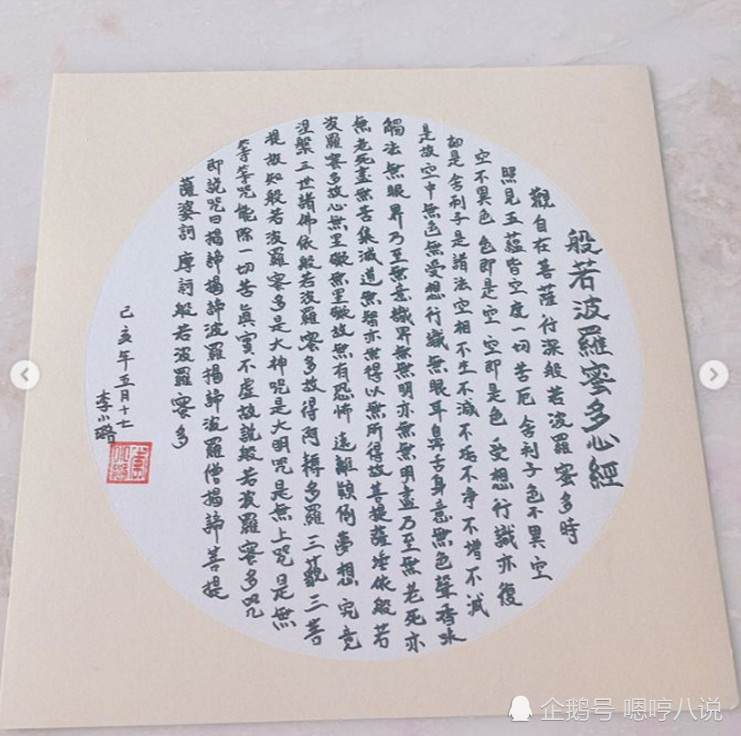 般若波羅蜜多心經
觀自在菩薩行深般若波羅蜜多時
照見五蘊皆空度一切苦厄舍利子色不異空
空不異色色即是空空即是色受想行識亦復
如是舍利子是諸法空相不生不滅不垢不淨不增不減
是故空中無色無受想行識無眼耳鼻舌身意無色聲香味
觸法無眼界乃至無意識界無無明亦無無明盡乃至無老死亦
無老死盡無苦集滅道無智亦無得以無所得故菩提薩埵依般若
波羅蜜多故心無罣礙無罣礙故無有恐怖遠離顛倒夢想究竟
涅槃三世諸佛依般若波羅蜜多故得阿耨多羅三藐三菩
提故知般若波羅蜜多是大神咒是大明咒是無上咒是無
等等咒能除一切苦真實不虛故說般若波羅蜜多咒
即說咒曰揭諦揭諦波羅揭諦波羅僧揭諦菩提
薩婆訶摩訶般若波羅蜜多
己亥年五月十七
李小璐
企鹅号 嗯哼八说